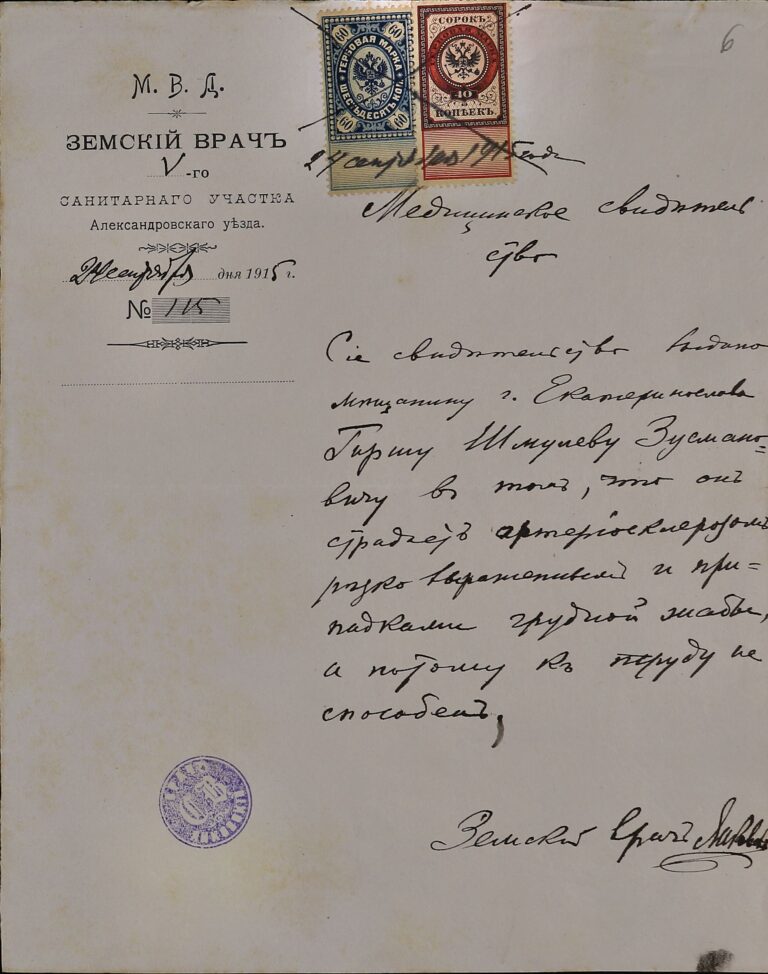 6
60 60
ГЕРБОВАЯ МАРКА
ШЕСТЬДЕСЯТЪ КОП.
60 60
СОРОКЪ
ГЕРБОВАЯ МАРКА
40
КОПѢЕКЪ
24 сентября 1915 года
М. В. Д.
ЗЕМСКІЙ ВРАЧЪ
V-го
САНИТАРНАГО УЧАСТКА
Александровскаго уѣзда.
24 сентября дня 1915 г.
№ 115
Медицинское свидѣтель
ство
Сіе свидѣтельство выдано
мѣщанину г. Екатеринослава
Гиршу Шмулеву Зусмано=
вичу в томъ, что онъ
страдаетъ артеріосклерозомъ
рѣзко выраженнымъ и при=
падками грудной жабы,
а потому къ труду не
способенъ,
Земский врачъ